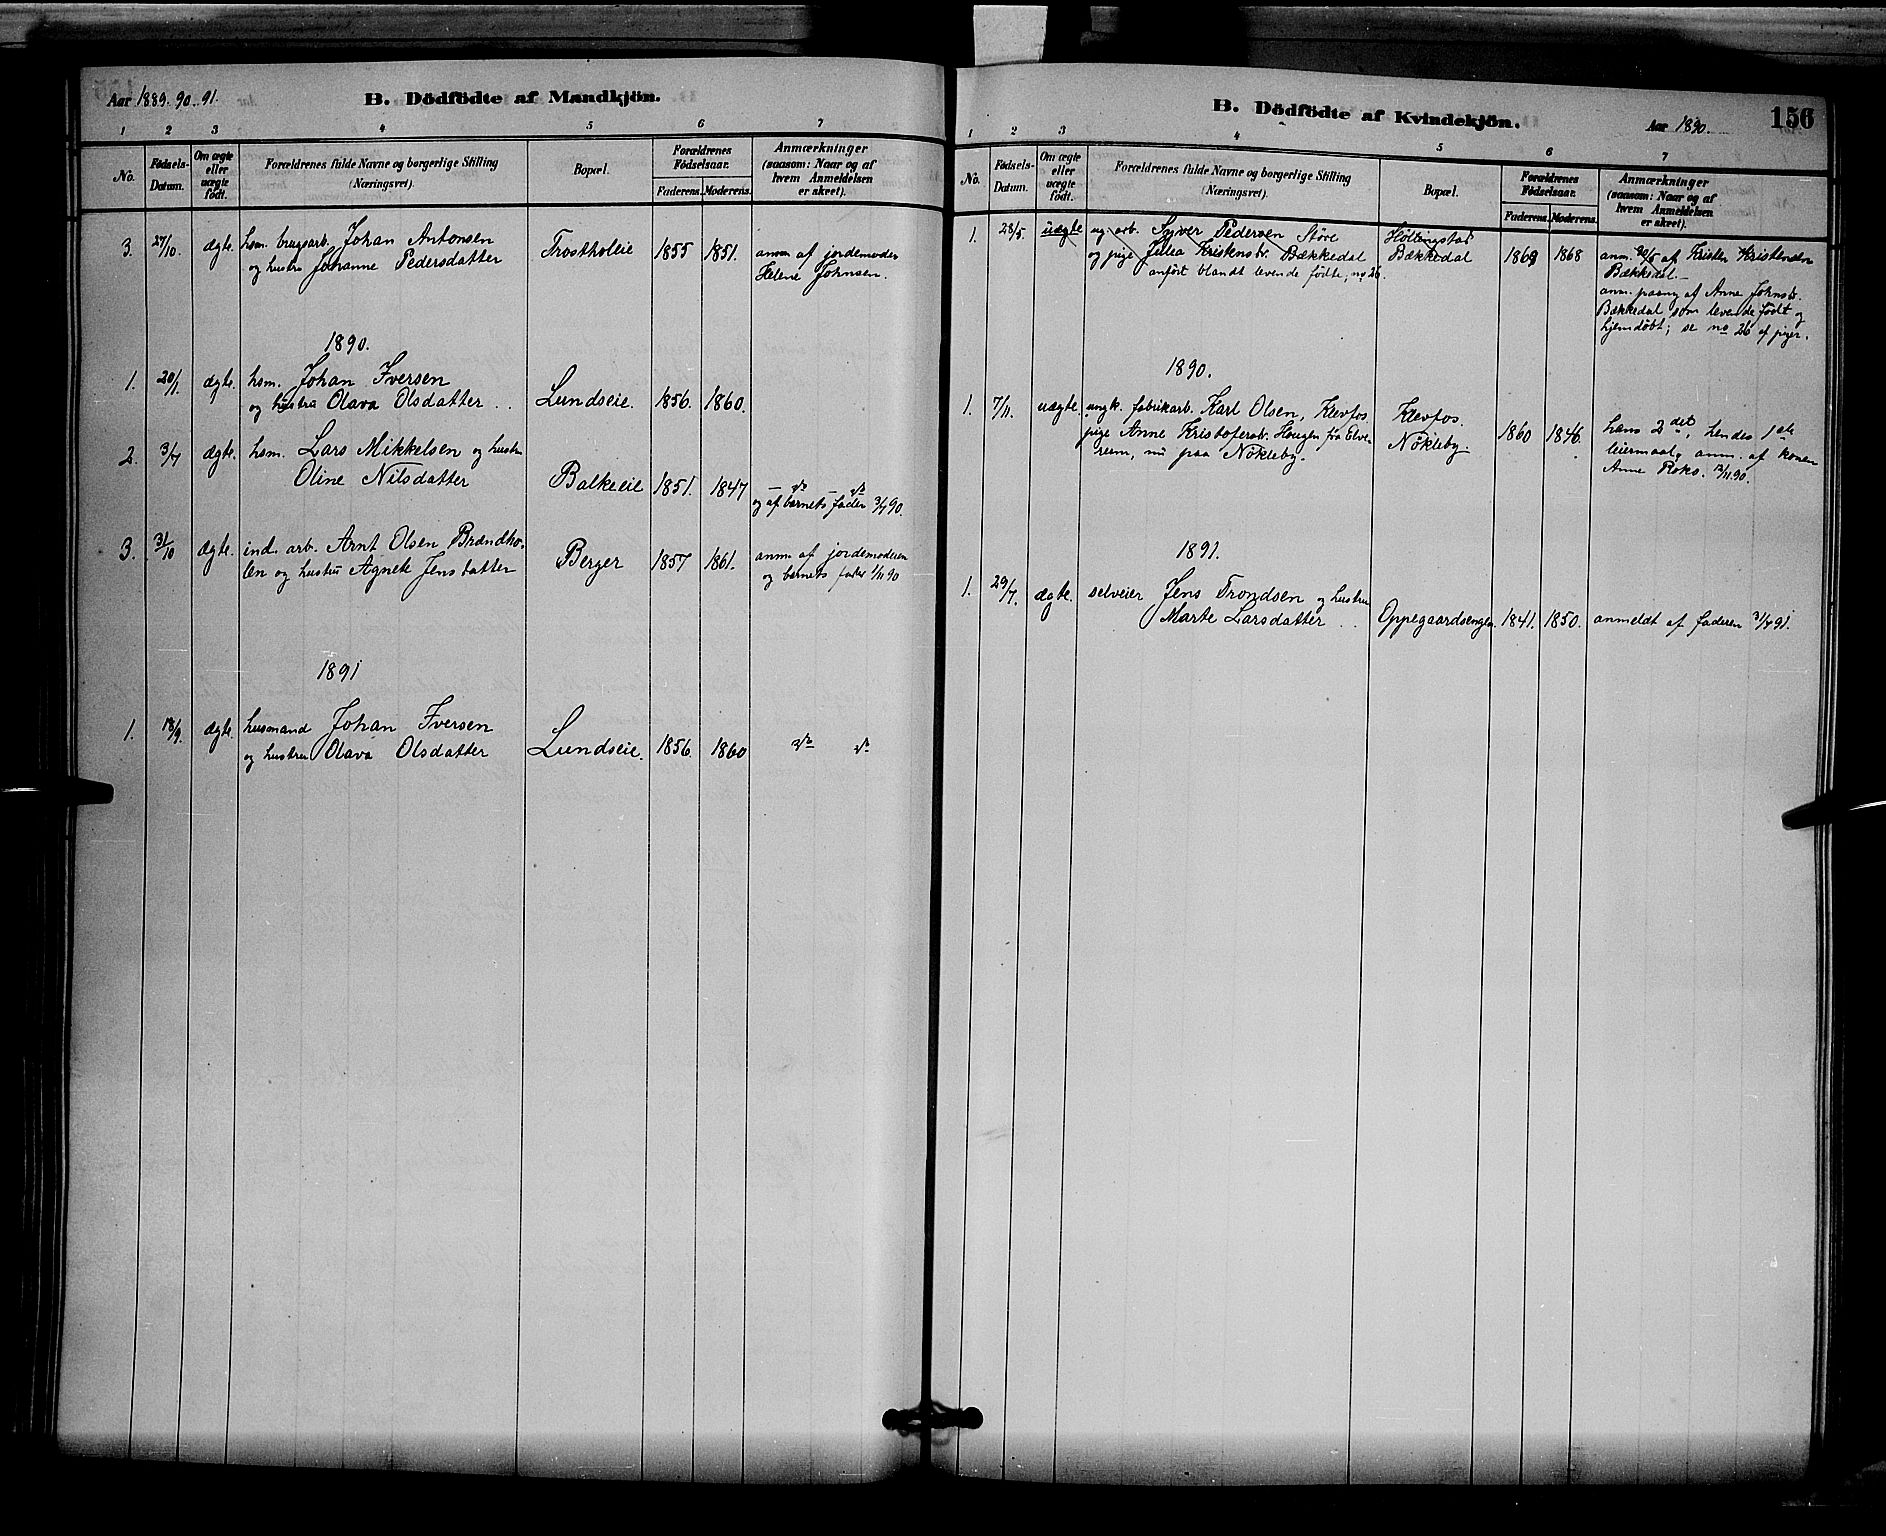 Aar 1889. 90. 91.
B. Dödfödte af Mandkjön.
1 2 3 4 5 6 7
No.
Födsels-Datum.
Om ægte eller uægte födt.
Forældrenes fulde Navne og borgerlige Stilling (Næringsvei).
Bopæl.
Forældrenes Födselsaar.
Faderens. Moderens.
Anmærkninger (saasom: Naar og af hvem Anmeldelsen er skeet).
3. 27/10. ægte. hsm. brugsarb. Johan Antonsen
og hustru Johanne Pedersdatter Trostholeie 1855 1851. anm af jordemoder
Helene Johnsen.
1890.
1. 20/1. ægte. hsm. Johan Iversen
og hustru Olava Olsdatter Lundseie. 1856. 1860.
2. 3/7 ægte. hsm. Lars Mikkelsen og hustru
Oline Nilsdatter Balkeeie 1851. 1847
og af barnets fader 3/7 90.
3. 31/10 ægte. ind. arb. Arnt Olsen Brændho-
len og hustru Agnete Jensdatter Berger 1857 1861. anm. af jordemoderen
og barnets fader 1/11 90
1891
1. 18/9. ægte. husmand Johan Iversen
og hustru Olava Olsdatter Lundseie. 1856. 1860
B. Dödfödte af Kvindekjön.
Aar 1890.
156
1 2 3 4 5 6 7
No.
Födsels-Datum.
Om ægte eller uægte födt.
Forældrenes fulde Navne og borgerlige Stilling (Næringsvei).
Bopæl.
Forældrenes Födselsaar.
Faderens. Moderens.
Anmærkninger (saasom: Naar og af hvem Anmeldelsen er skeet).
1. 28/5. uægte ug. arb. Syver Pedersen Störe Höllingstad
og pige Julea Kristensdr. Bækkedal Bækkedal 1869 1868 anm. 30/5 af Kristen Kristensen
anfört blandt levende födte, no 26. Bækkedal.
anm. paany af Anne Johnsdr.
Bækkedal som levende födt og
hjemdöbt; se no 26 af piger.
1890.
1. 7/11. uægte. ungk. fabrikarb. Karl Olsen, Klevfos Klevfos.
pige Anne Kristofersdr. Haugen fra Elve- Nökleby 1860 1846. hans 2det, hendes 1ste
rum, nu paa Nökleby. leiermaal, anm. af konen
Anne Roko. 12/11 90.
1891.
1. 29/7. ægte. selveier Jens Trondsen og hustru
Marte Larsdatter Oppegaardsengen. 1841. 1850. anmeldt af faderen 31/7 91.